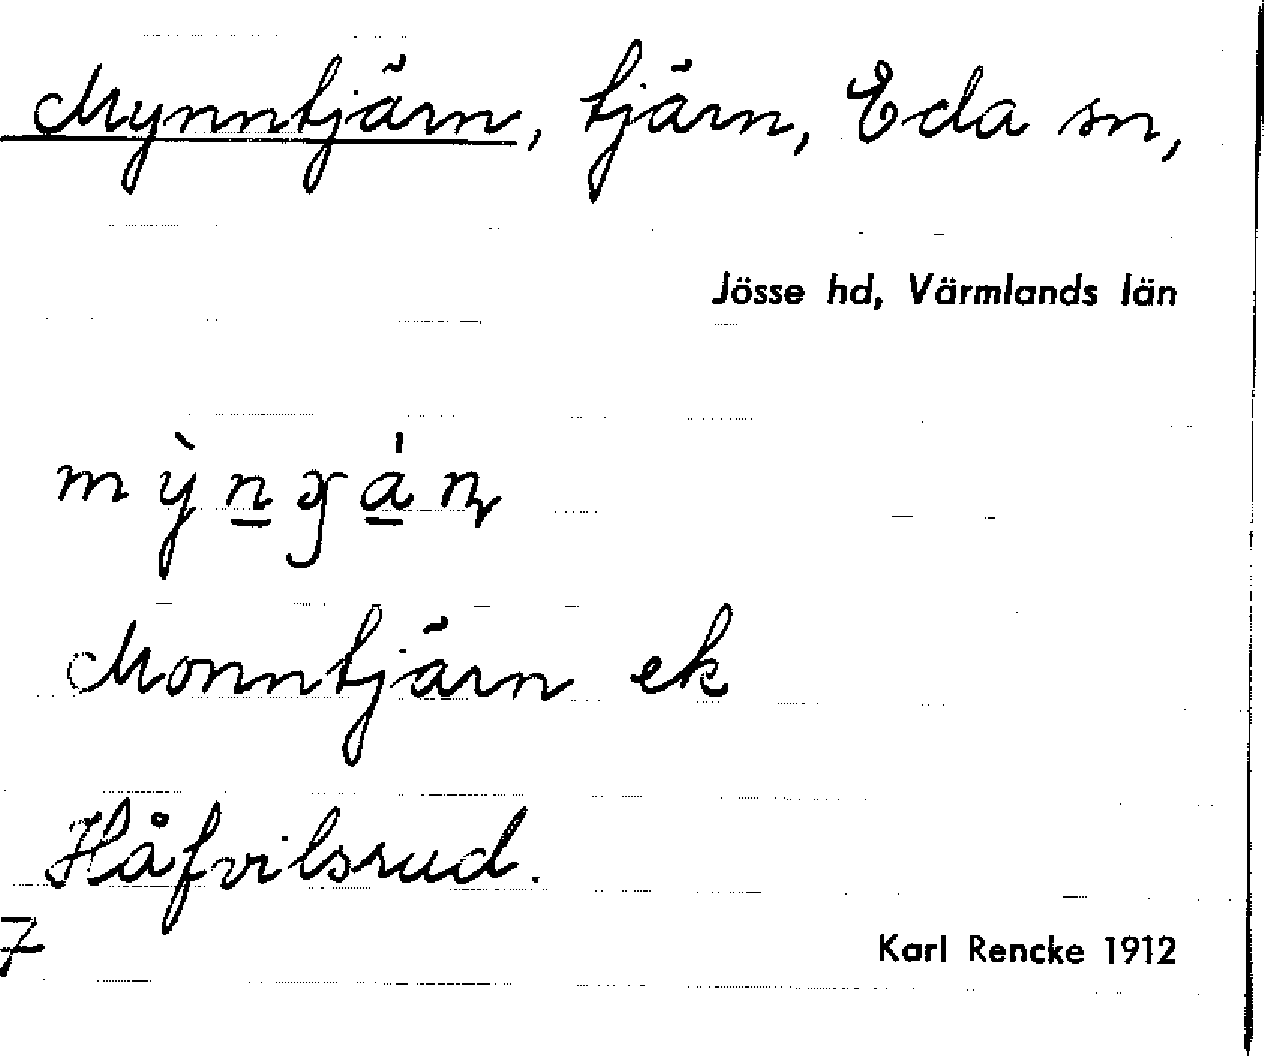 Mynntjärn, tjärn, Eda sn,
Jösse hd, Värmlands län
Monntjärn ek
Håfvilsrud.
7
Karl Rencke 1912